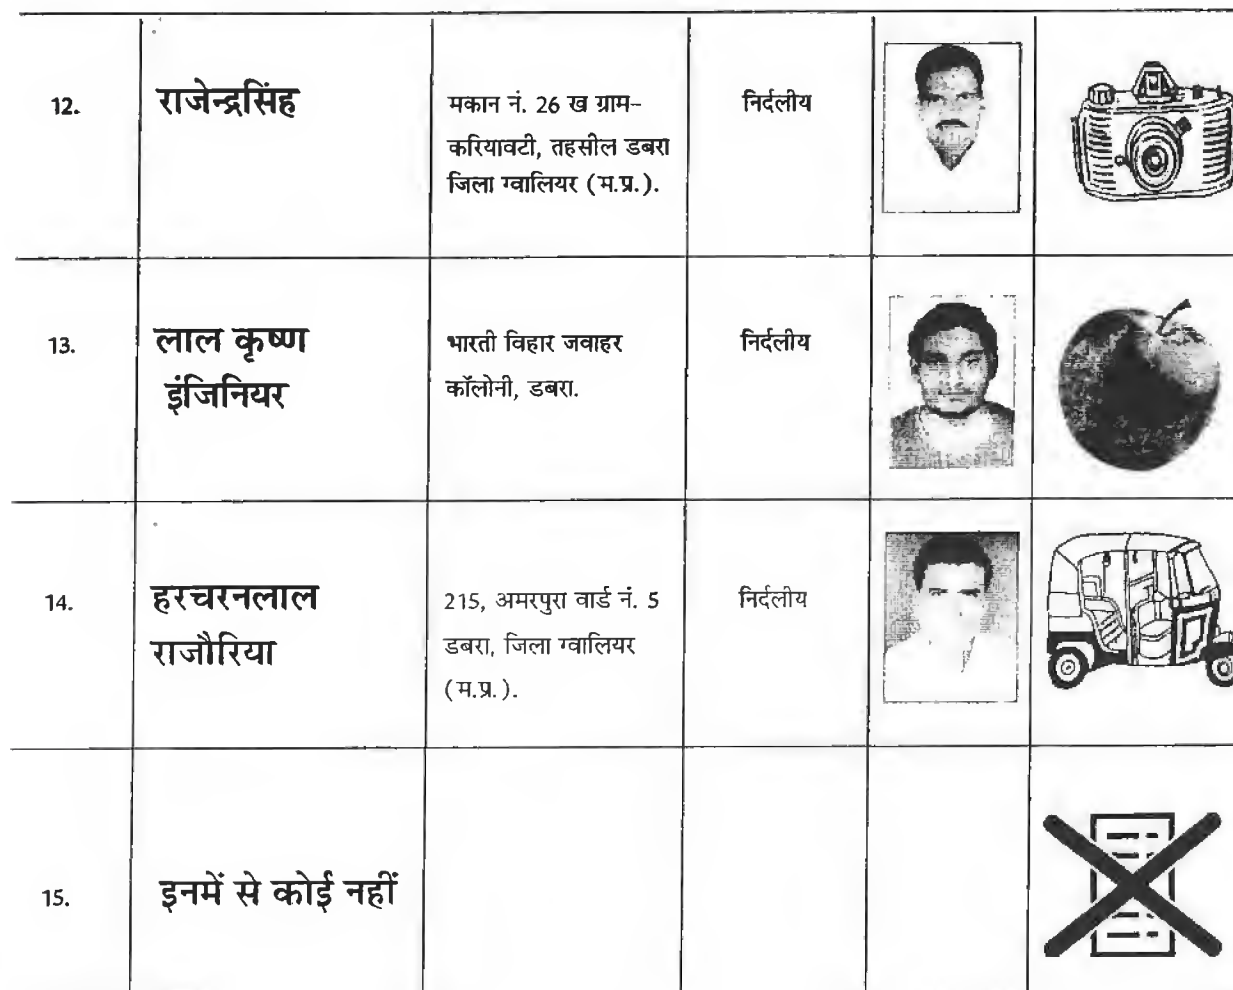 12.
राजेन्द्रसिंह
मकान नं. 26 ख ग्राम-
करियावटी, तहसील डबरा
जिला ग्वालियर (म.प्र.).
निर्दलीय
13.
लाल कृष्ण
इंजिनियर
भारती विहार जवाहर
कॉलोनी, डबरा.
निर्दलीय
14.
हरचरनलाल
राजौरिया
215, अमरपुरा वार्ड नं. 5
डबरा, जिला ग्वालियर
(म.प्र.).
निर्दलीय
15.
इनमें से कोई नहीं